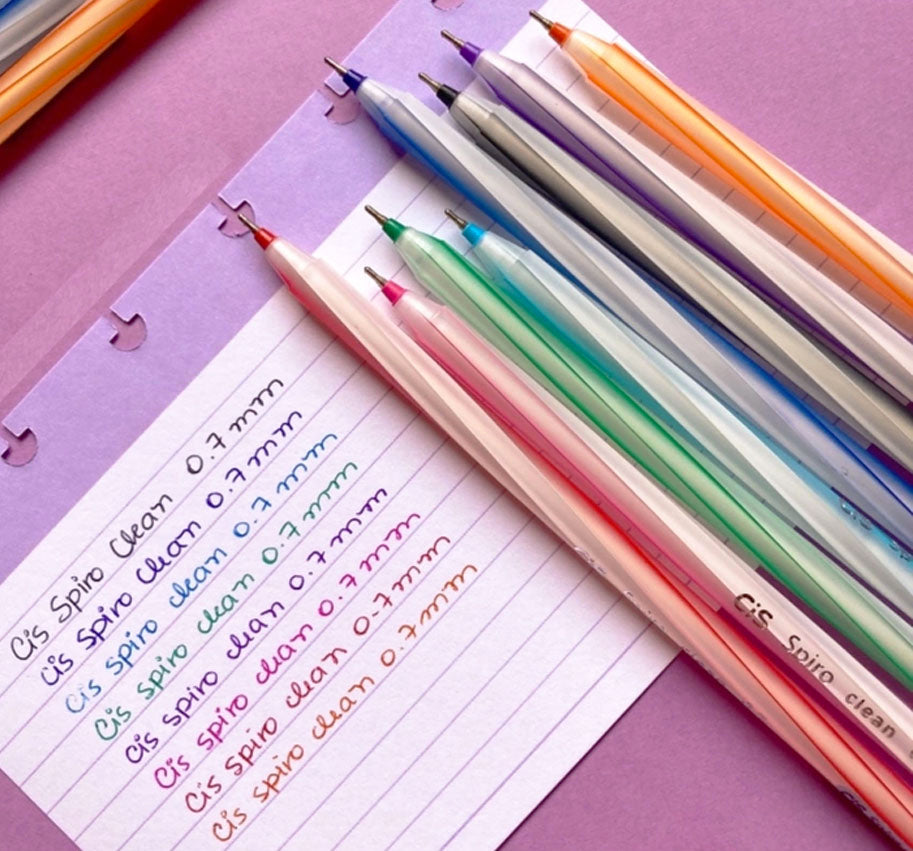 Cis Spiro Clean 0.7 mm
Cis spiro clean 0.7 mm
Cis spiro clean 0.7 mm
Cis spiro clean 0.7 mm
Cis spiro clean 0.7 mm
Cis spiro clean 0.7 mm
Cis spiro clean 0.7 mm
Cis spiro clean 0.7 mm
CiS Spiro clean
CiS